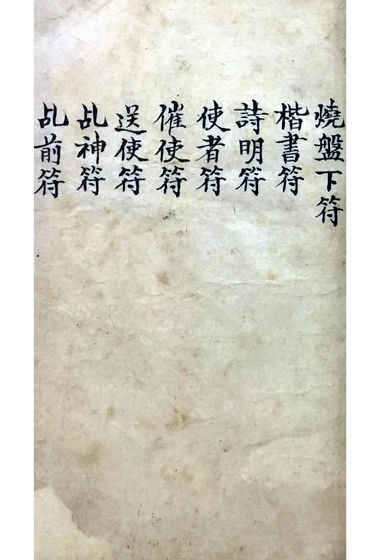 燒盤下符
楷書符
詩明符
使者符
催使符
送使符
乩神符
乩前符